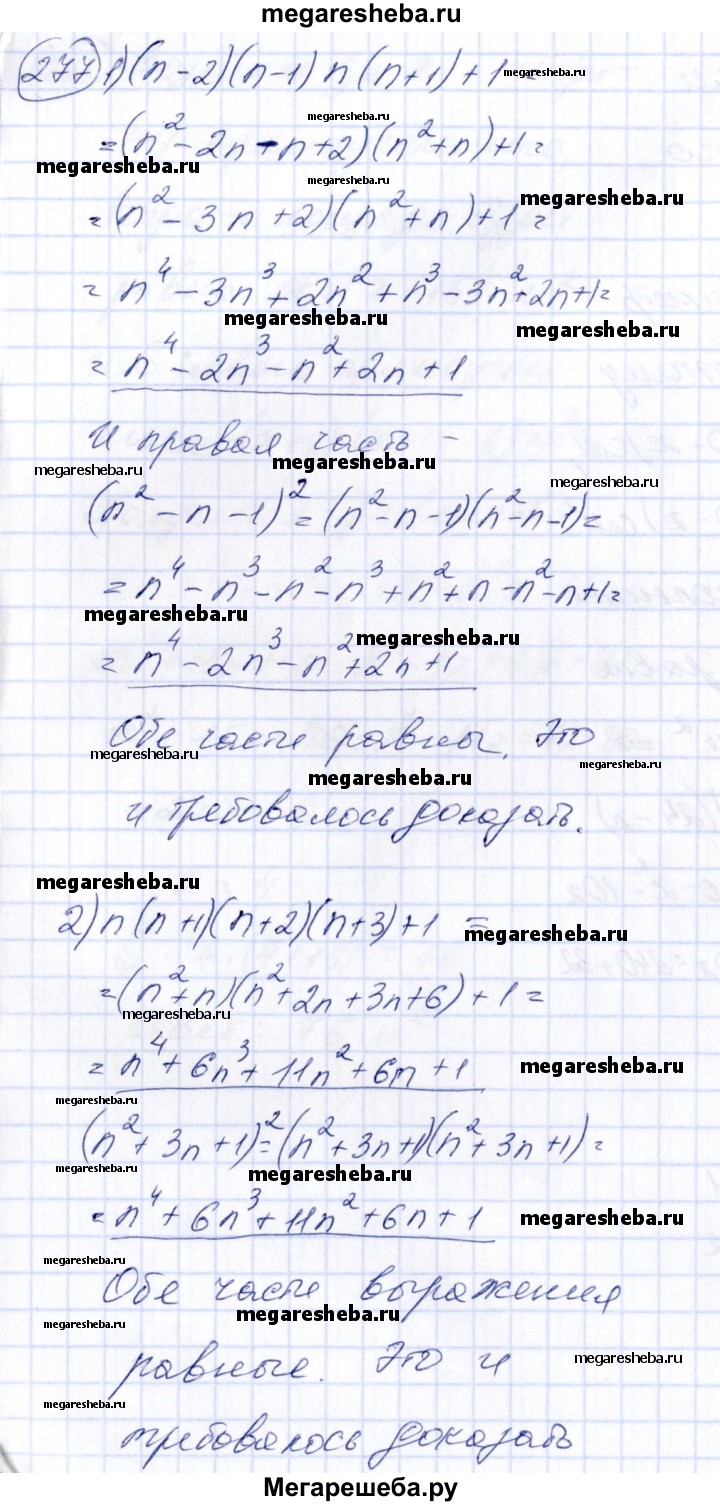 megaresheba.ru
277 1) (n-2)(n-1)n(n+1)+1 =
megaresheba.ru
megaresheba.ru
=(n²-2n-n+2)(n²+n)+1=
megaresheba.ru
megaresheba.ru
megaresheba.ru
=(n²-3n+2)(n²+n)+1=
megaresheba.ru
=n⁴-3n³+2n²+n³-3n²+2n+1=
megaresheba.ru
megaresheba.ru
=n⁴-2n³-n²+2n+1
И правая часть -
megaresheba.ru
megaresheba.ru
megaresheba.ru
(n²-n-1)²=(n²-n-1)(n²-n-1)=
=n⁴-n³-n²-n³+n²+n-n²-n+1=
megaresheba.ru
megaresheba.ru
=n⁴-2n³-n²+2n+1
Обе части равны. Это
megaresheba.ru
megaresheba.ru
megaresheba.ru
и требовалось доказать.
megaresheba.ru
2) n(n+1)(n+2)(n+3)+1 =
megaresheba.ru
=(n²+n)(n²+2n+3n+6)+1=
megaresheba.ru
=n⁴+6n³+11n²+6n+1
megaresheba.ru
megaresheba.ru
(n²+3n+1)²=(n²+3n+1)(n²+3n+1)=
megaresheba.ru
megaresheba.ru
=n⁴+6n³+11n²+6n+1
megaresheba.ru
megaresheba.ru
Обе части выражения
megaresheba.ru
megaresheba.ru
равные. Это и
megaresheba.ru
megaresheba.ru
требовалось доказать
Мегарешеба.ру